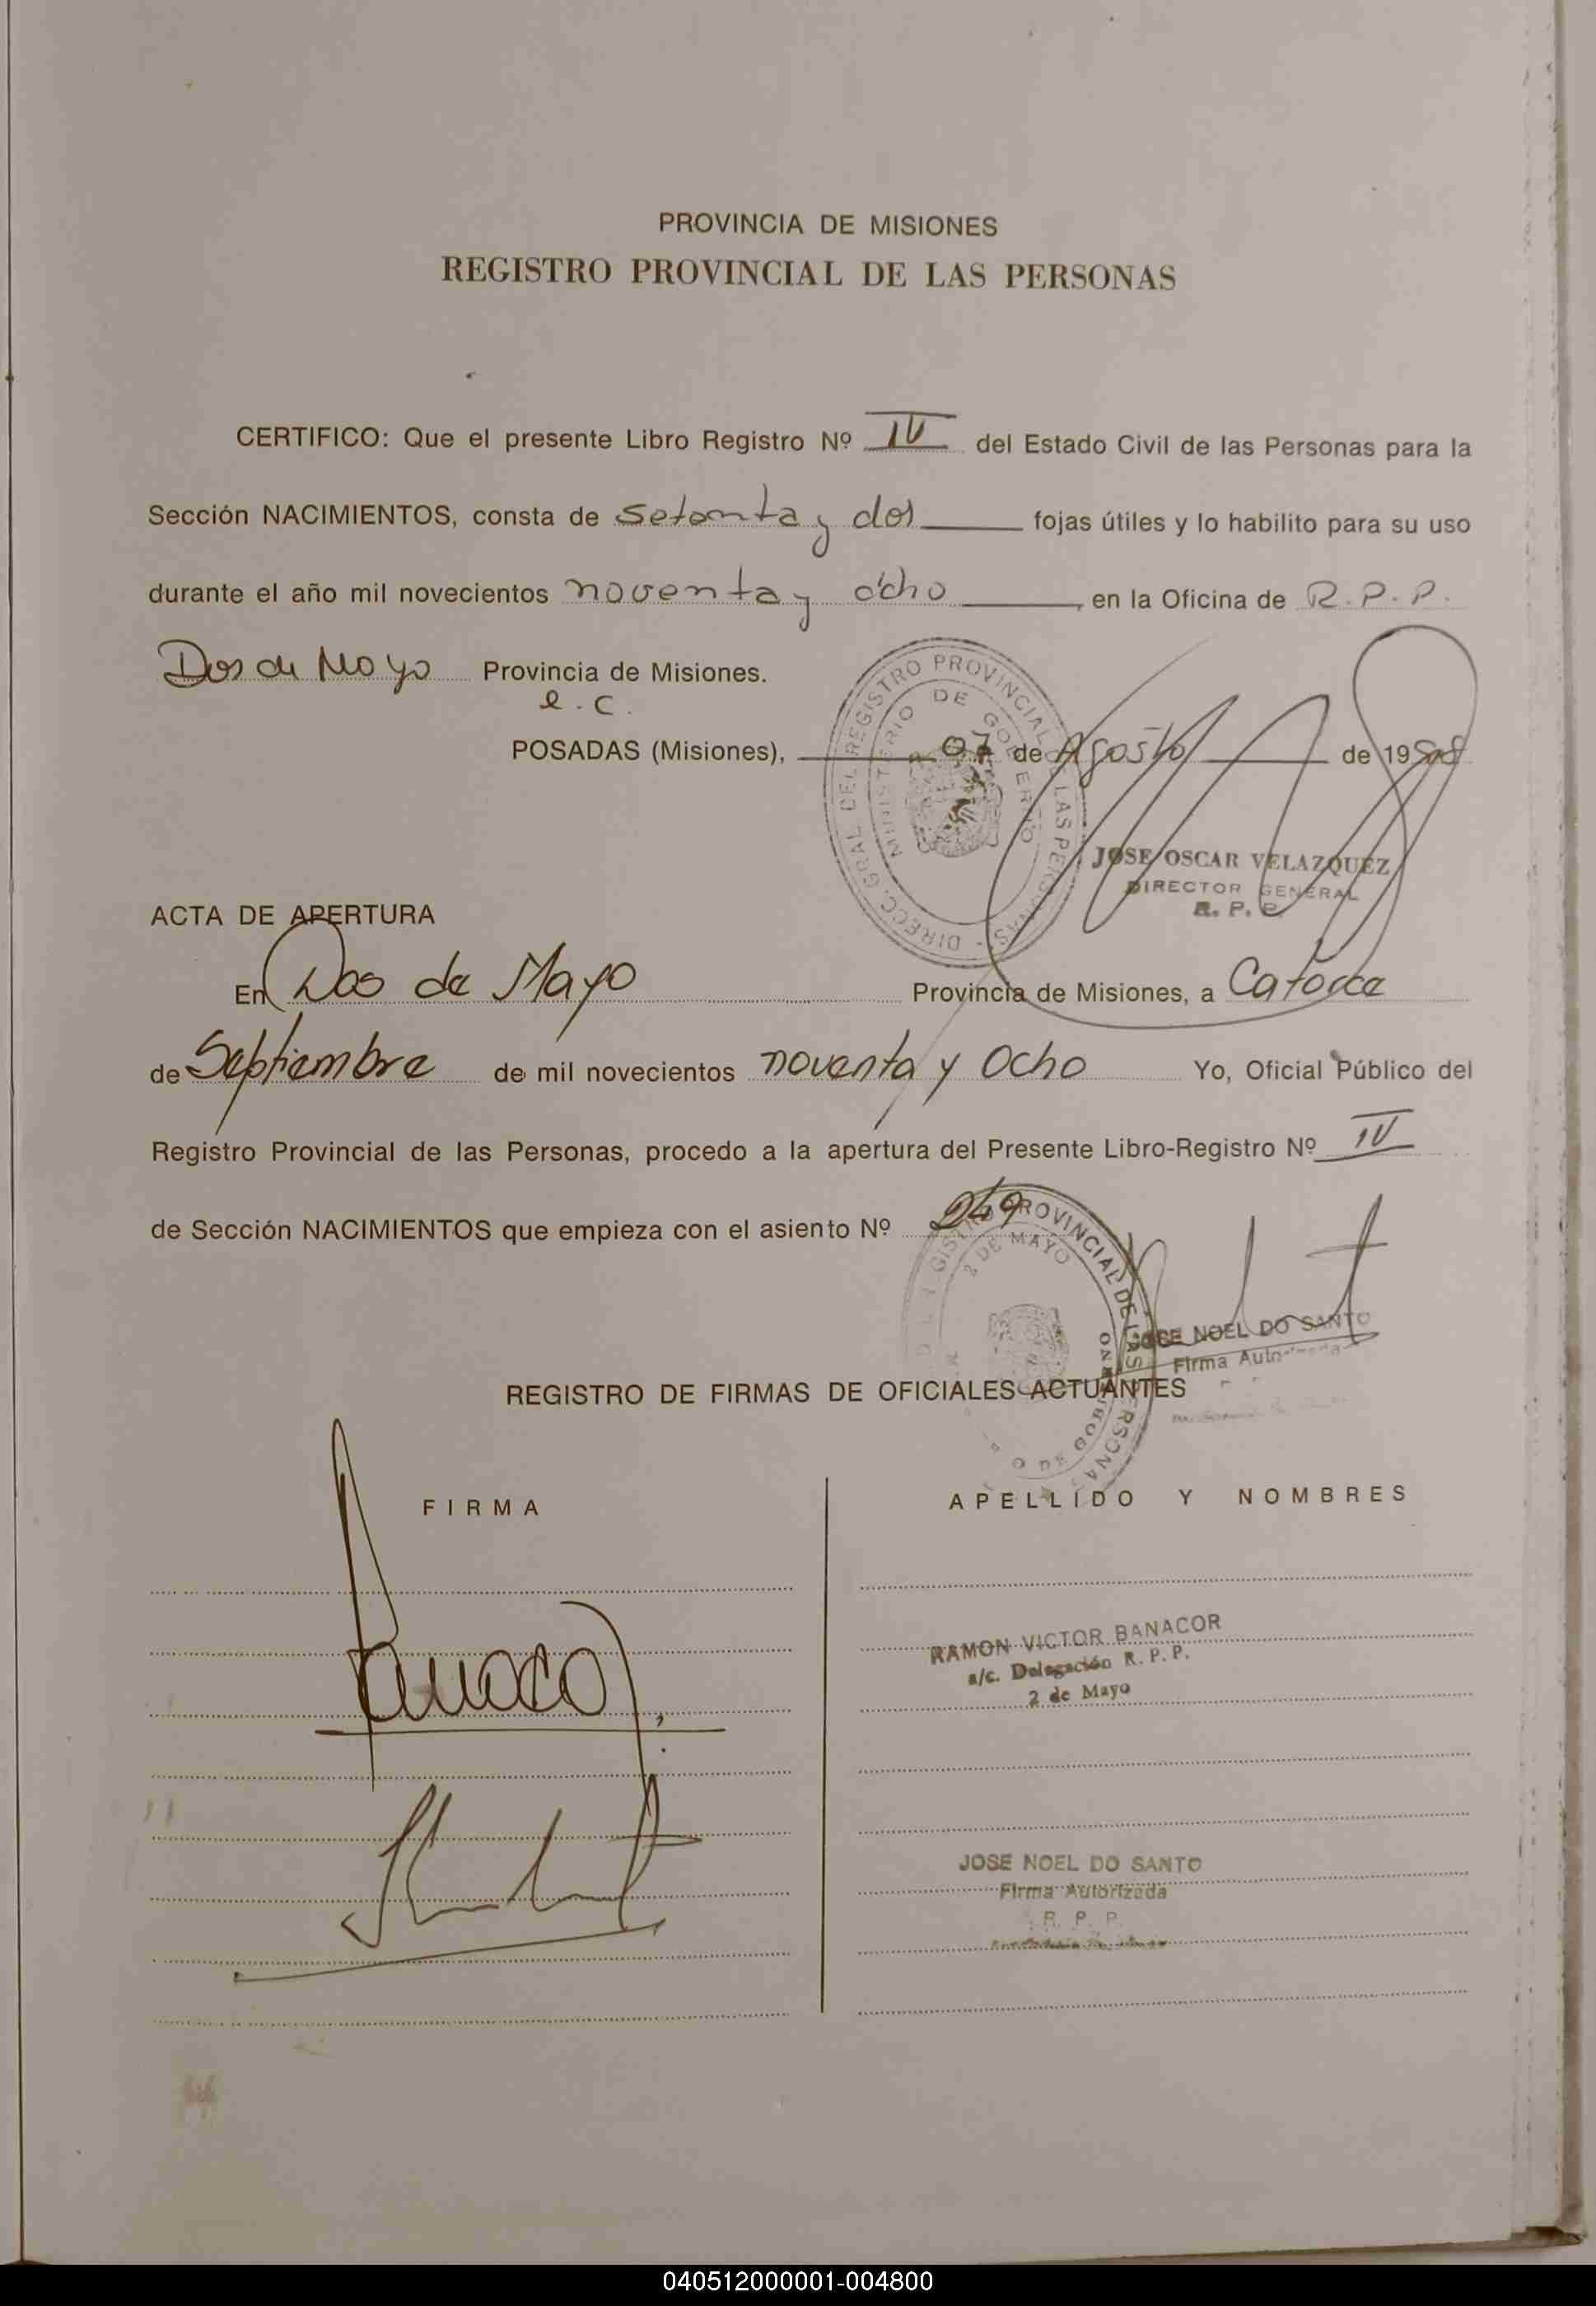 PROVINCIA DE MISIONES
REGISTRO PROVINCIAL DE LAS PERSONAS
CERTIFICO: Que el presente Libro Registro Nº IV del Estado Civil de las Personas para la
Sección NACIMIENTOS, consta de setenta y dos fojas útiles y lo habilito para su uso
durante el año mil novecientos noventa y ocho en la Oficina de R.P.P.
Dos de Mayo Provincia de Misiones.
e.c.
POSADAS (Misiones), 07 de Agosto de 1998
DIRECC. GRAL DEL REGISTRO PROVINCIAL DE LAS PERSONAS
MINISTERIO DE GOBIERNO
JOSE OSCAR VELAZQUEZ
DIRECTOR GENERAL
R. P. P.
ACTA DE APERTURA
En Dos de Mayo Provincia de Misiones, a Catorce
de Septiembre de mil novecientos noventa y Ocho Yo, Oficial Público del
Registro Provincial de las Personas, procedo a la apertura del Presente Libro-Registro Nº IV
de Sección NACIMIENTOS que empieza con el asiento Nº 249
PROVINCIAL DE LAS PERSONAS
2 DE MAYO
JOSE NOEL DO SANTO
Firma Autorizada
REGISTRO DE FIRMAS DE OFICIALES ACTUANTES
FIRMA
APELLIDO Y NOMBRES
RAMON VICTOR BANACOR
a/c. Delegación R. P. P.
2 de Mayo
JOSE NOEL DO SANTO
Firma Autorizada
R. P. P.
040512000001-004800